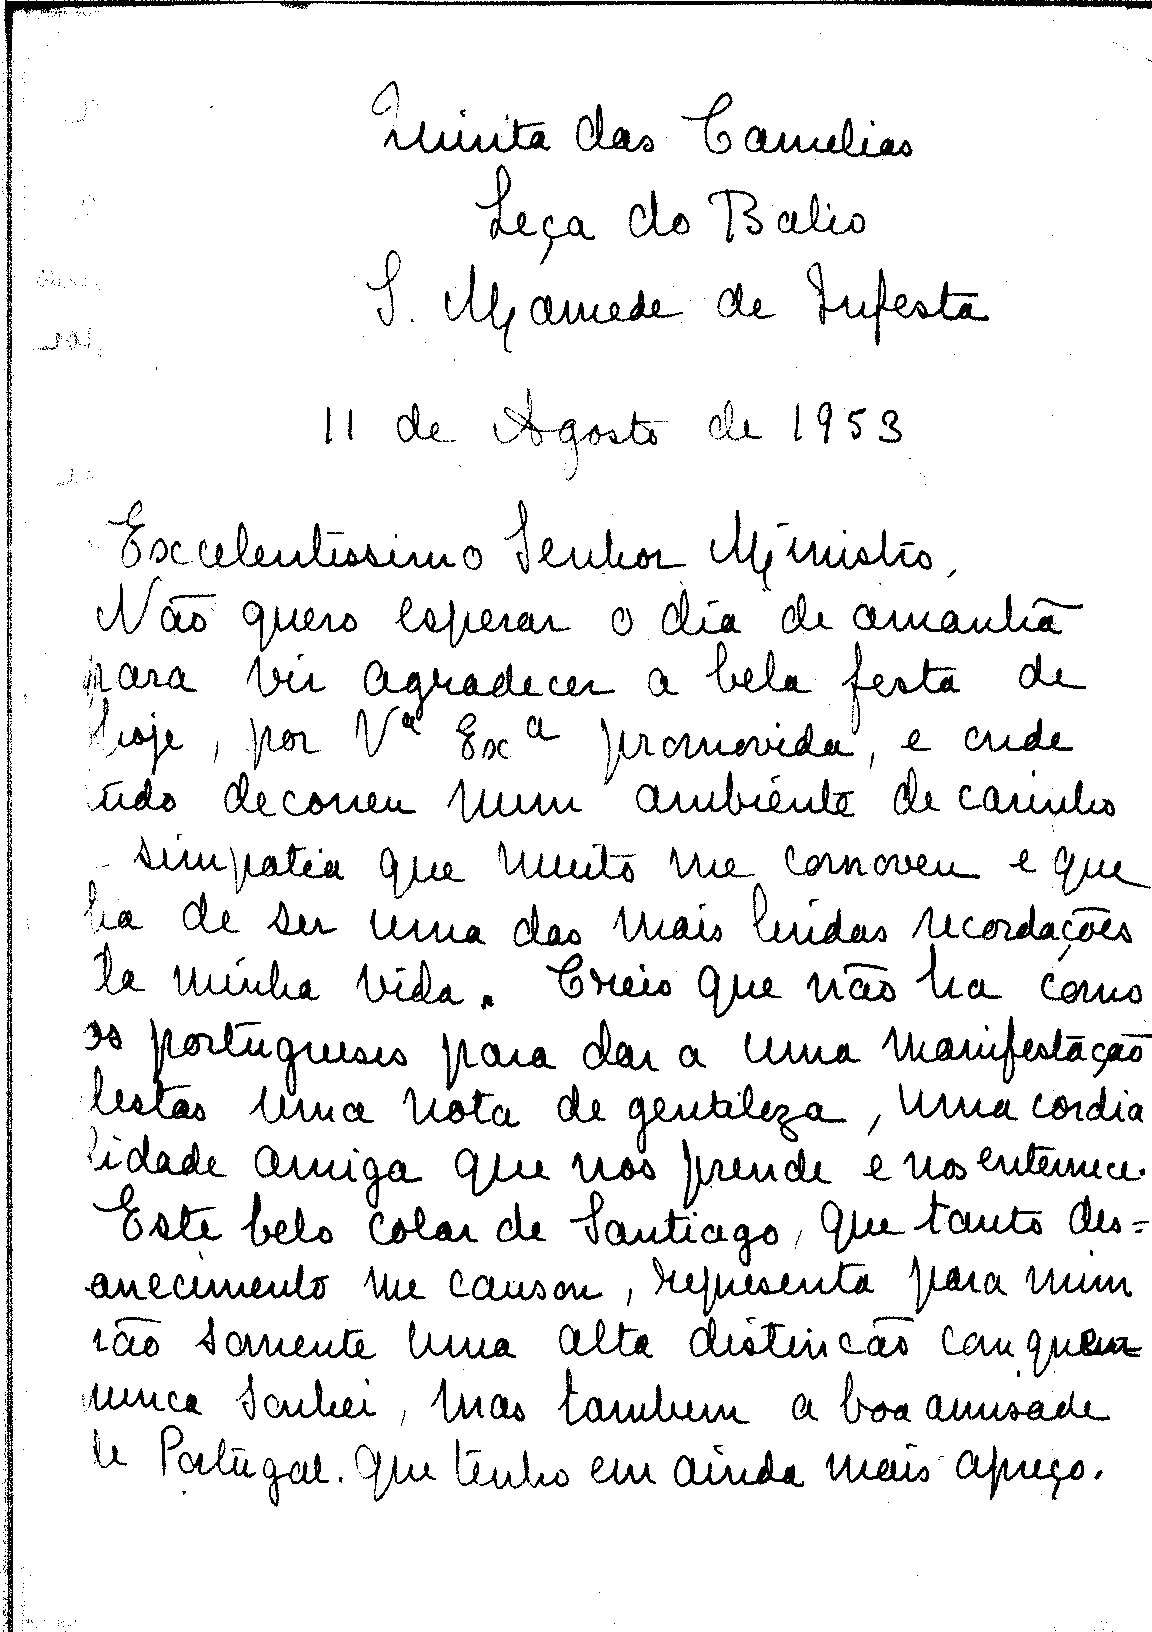 Quinta das Camelias
Leça do Balio
S. Mamede de Infesta
11 de Agosto de 1953
Excelentissimo Senhor Ministro,
Não quero esperar o dia de amanhã
para vir agradecer a bela festa de
hoje, por Vª Exª promovida, e onde
tudo decorreu num ambiente de carinho
simpatia que muito me comoveu e que
ha de ser uma das mais lindas recordações
da minha vida. Creio que não ha como
os portugueses para dar a uma manifestação
destas uma nota de gentileza, uma cordia
lidade amiga que nos prende e nos enternece.
Este belo colar de Santiago, que tanto des=
vanecimento me causou, representa para mim
não somente uma alta distincão com quem
nunca sonhei, mas tambem a boa amisade
de Portugal. que tenho em ainda mais apreço.